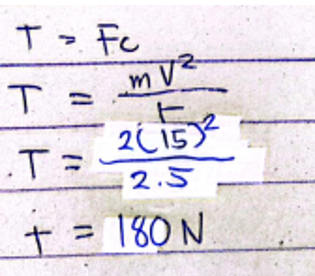 T = Fc
T = mv²/r
T = 2(15)²/2.5
t = 180 N